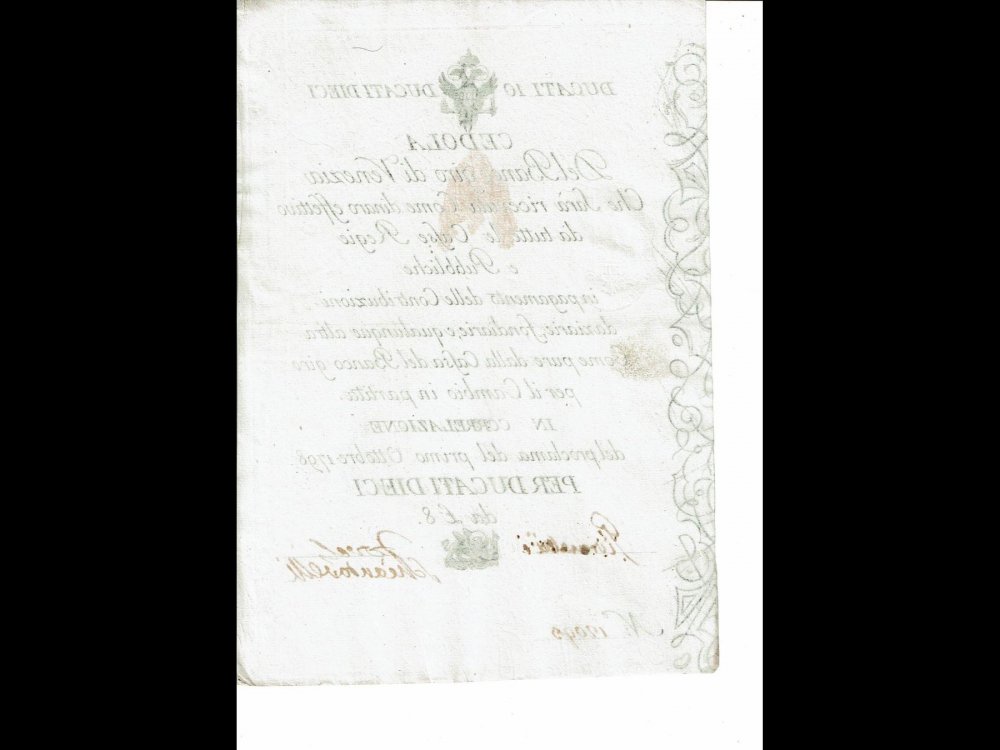 DUCATI 10 DUCATI DIECI
CEDOLA
Del Banco Giro di Venezia
Che Sarà ricevuta Come dinaro effettivo
da tutte le Casse Regie
e Pubbliche
in pagamento delle Contribuzioni,
daziarie, fondiarie, e qualunque altra
Come pure dalla Cassa del Banco giro
per il Cambio in partita.
IN CORRELAZIONE
del proclama del primo Ottobre 1798.
PER DUCATI DIECI
da £ 8.
N.